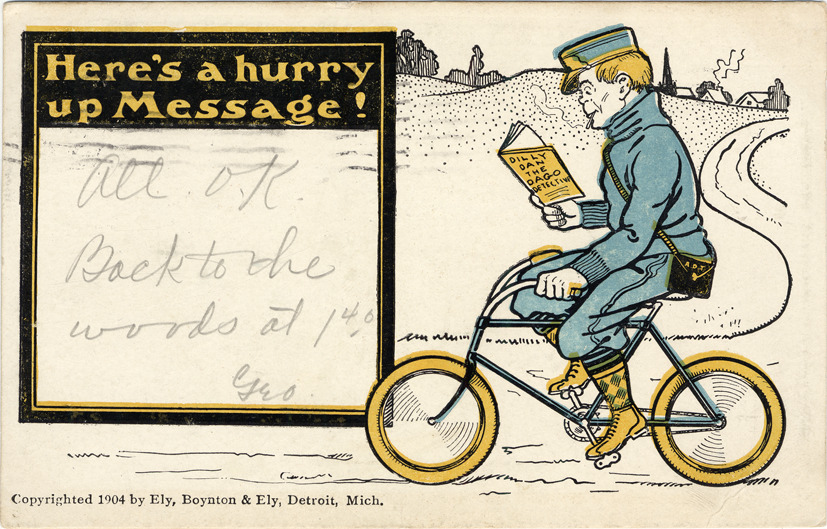 Here's a hurry
up Message!
All O.K.
Back to the
woods at 1 40
Geo.
DILLY
DAN
THE
DAGO
DETECTIVE
A.D.T.
Copyrighted 1904 by Ely, Boynton & Ely, Detroit, Mich.